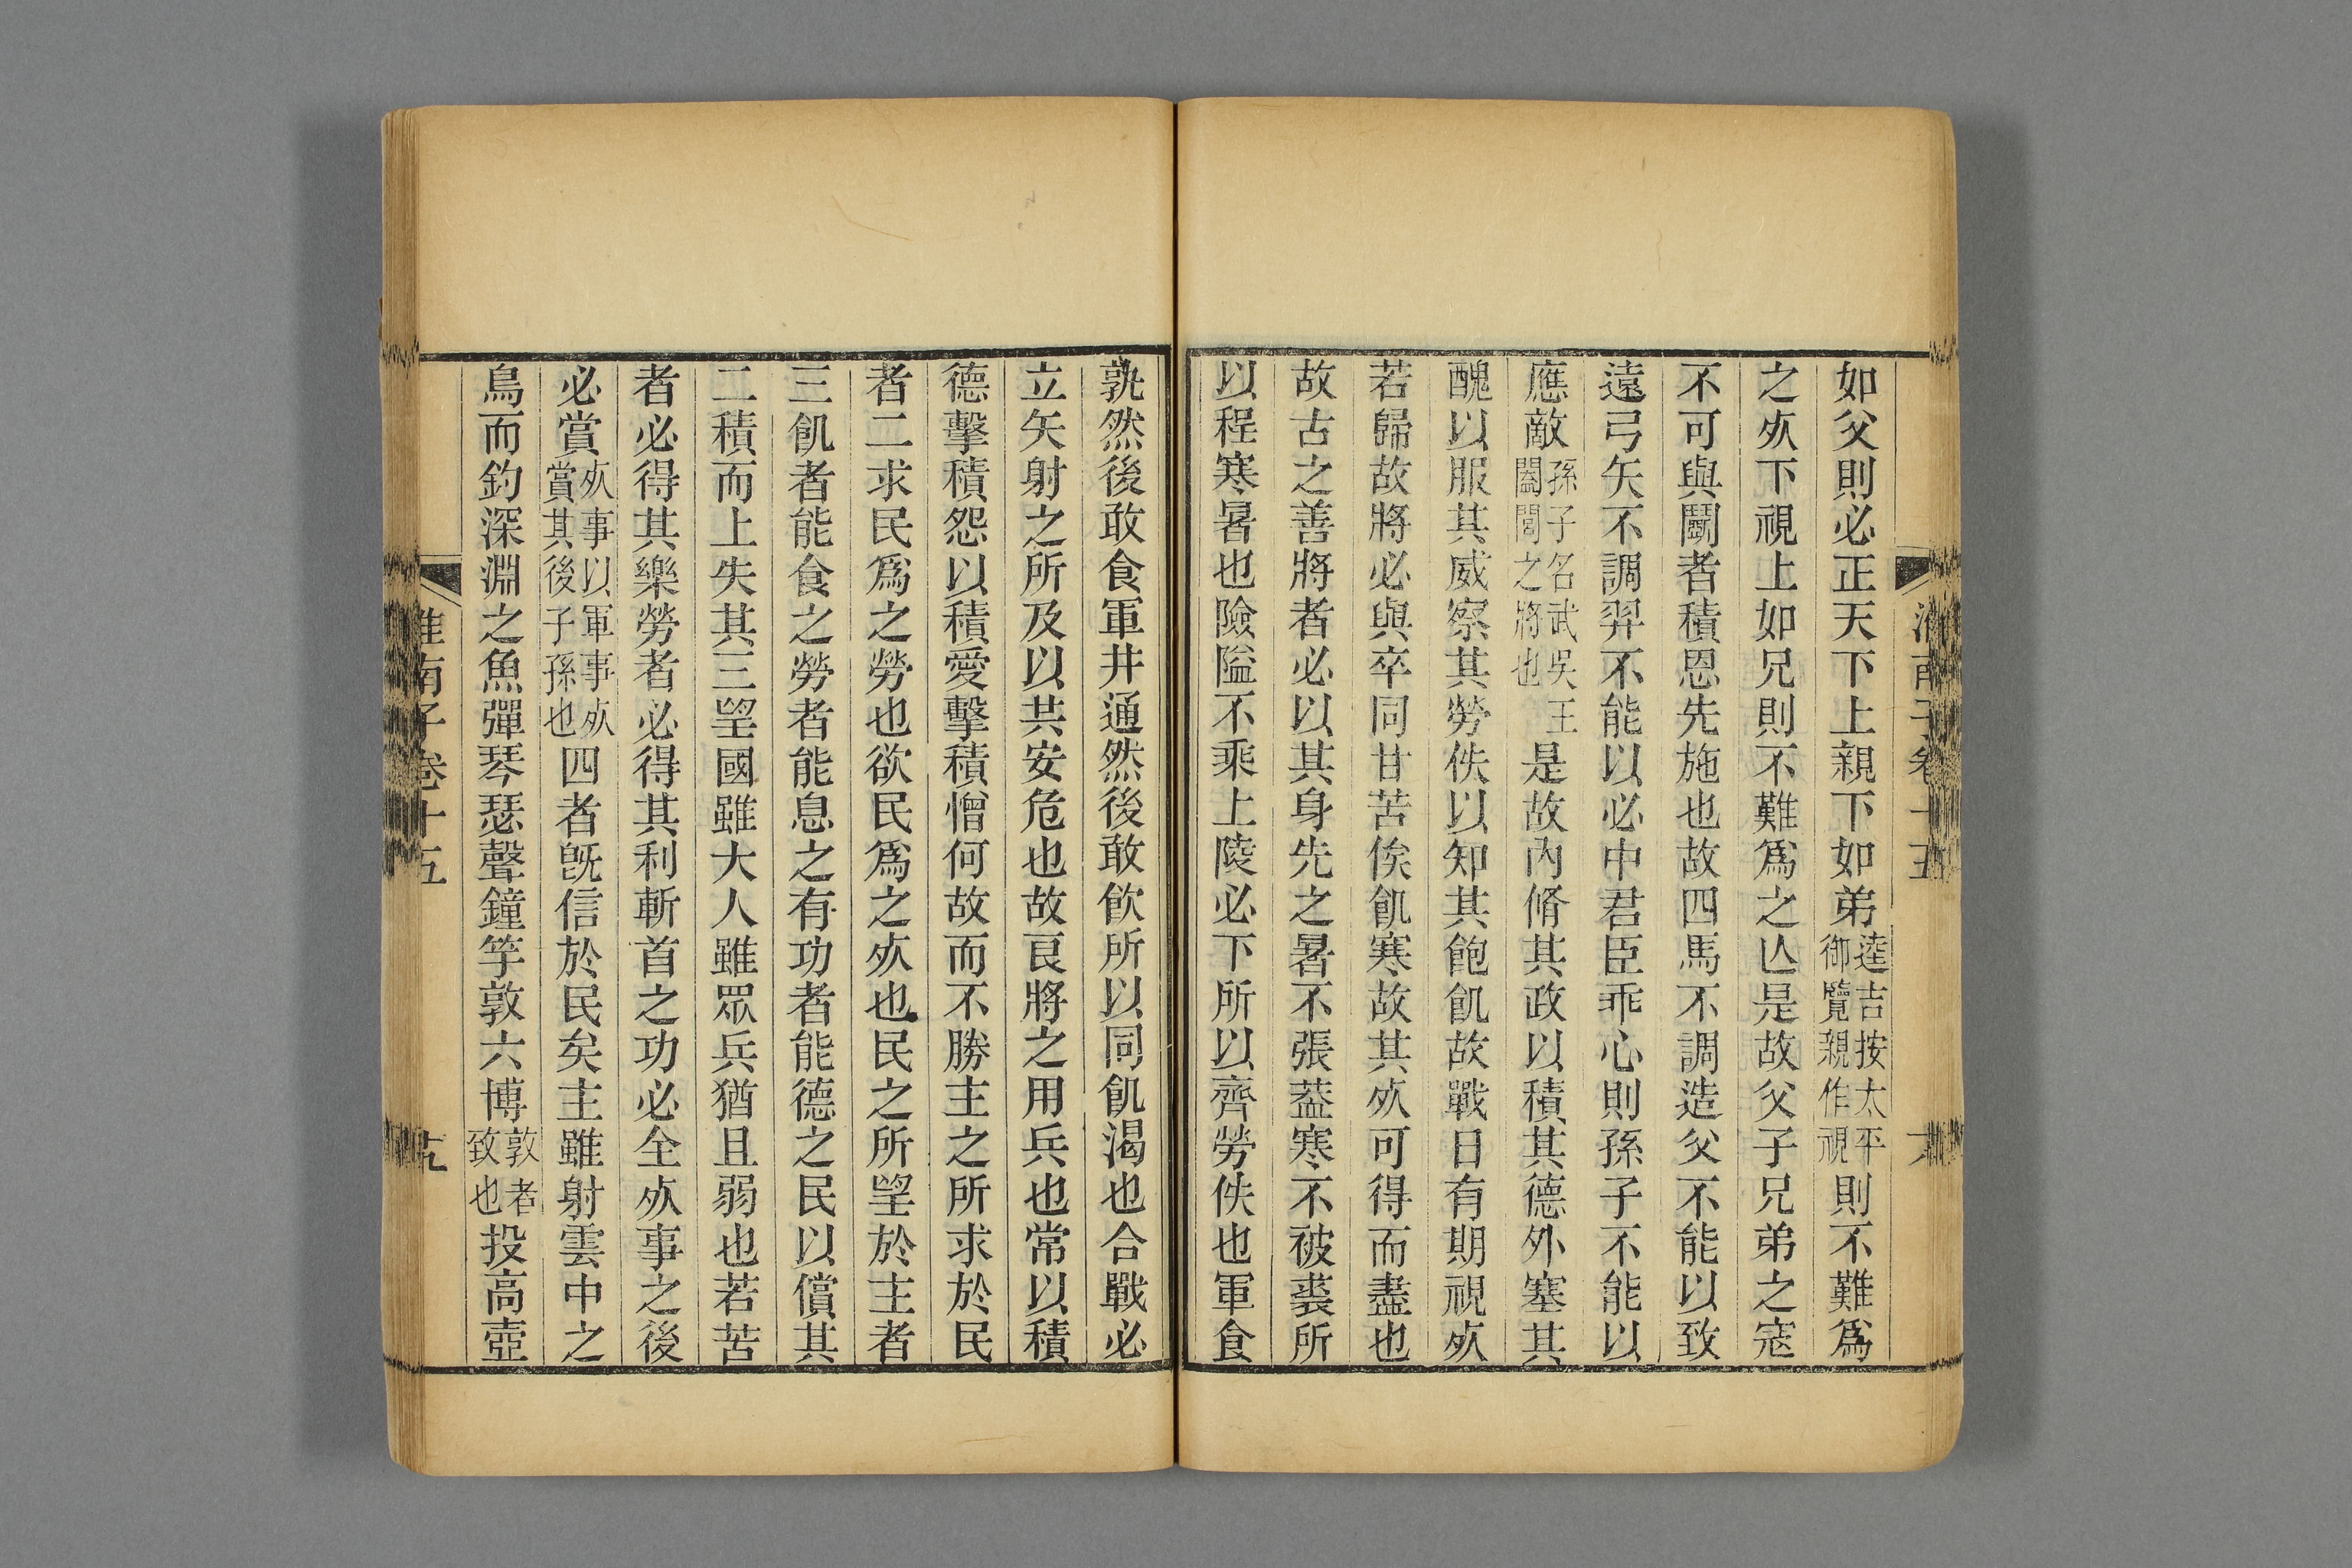 淮南子卷十五
如父則必正天下上親下如弟逵吉按太平御覽親作視則不難爲
之㱙下視上如兄則不難爲之亾是故父子兄弟之寇
不可與鬭者積恩先施也故四馬不調造父不能以致
遠弓矢不調羿不能以必中君臣乖心則孫子不能以
應敵孫子名武吳王闔閭之將也是故內脩其政以積其德外塞其
醜以服其威察其勞佚以知其飽飢故戰日有期視㱙
若歸故將必與卒同甘苦俟飢寒故其㱙可得而盡也
故古之善將者必以其身先之暑不張葢寒不被裘所
以程寒暑也險隘不乘上陵必下所以齊勞佚也軍食
孰然後敢食軍井通然後敢飮所以同飢渴也合戰必
立矢射之所及以共安危也故良將之用兵也常以積
德擊積怨以積愛擊積憎何故而不勝主之所求於民
者二求民爲之勞也欲民爲之㱙也民之所望於主者
三飢者能食之勞者能息之有功者能德之民以償其
二積而上失其三望國雖大人雖眾兵猶且弱也若苦
者必得其樂勞者必得其利斬首之功必全㱙事之後
必賞㱙事以軍事㱙賞其後子孫也四者旣信於民矣主雖射雲中之
鳥而釣深淵之魚彈琴瑟聲鐘竽敦六博敦者致也投高壺
淮南子卷十五